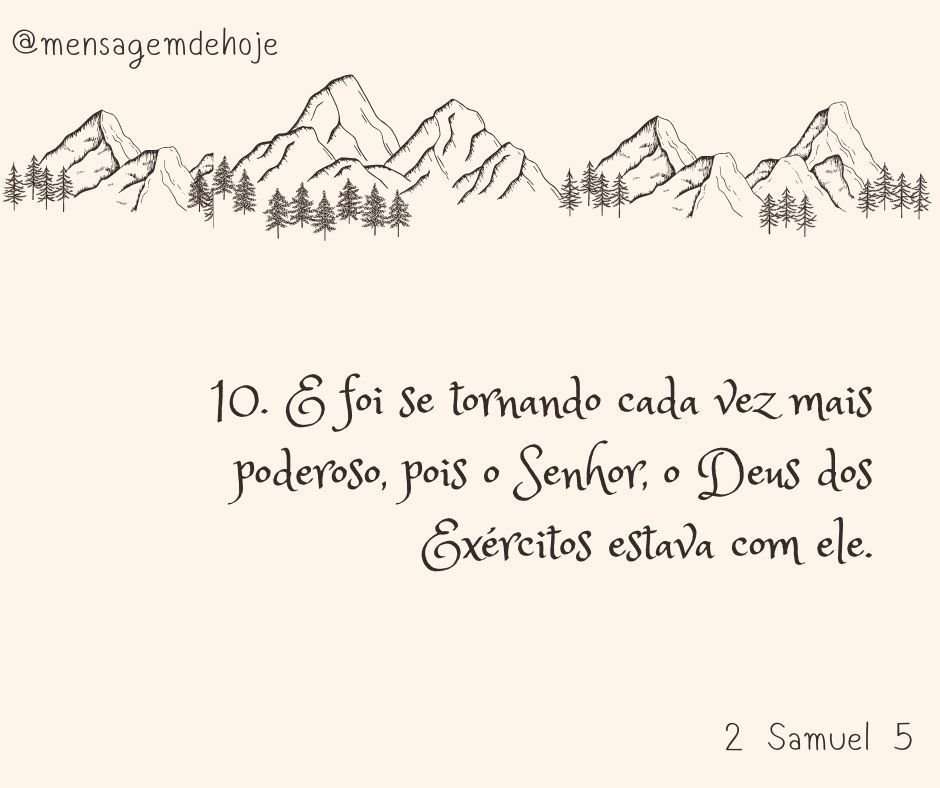 @mensagemdehoje
10. E foi se tornando cada vez mais
poderoso, pois o Senhor, o Deus dos
Exércitos estava com ele.
2 Samuel 5